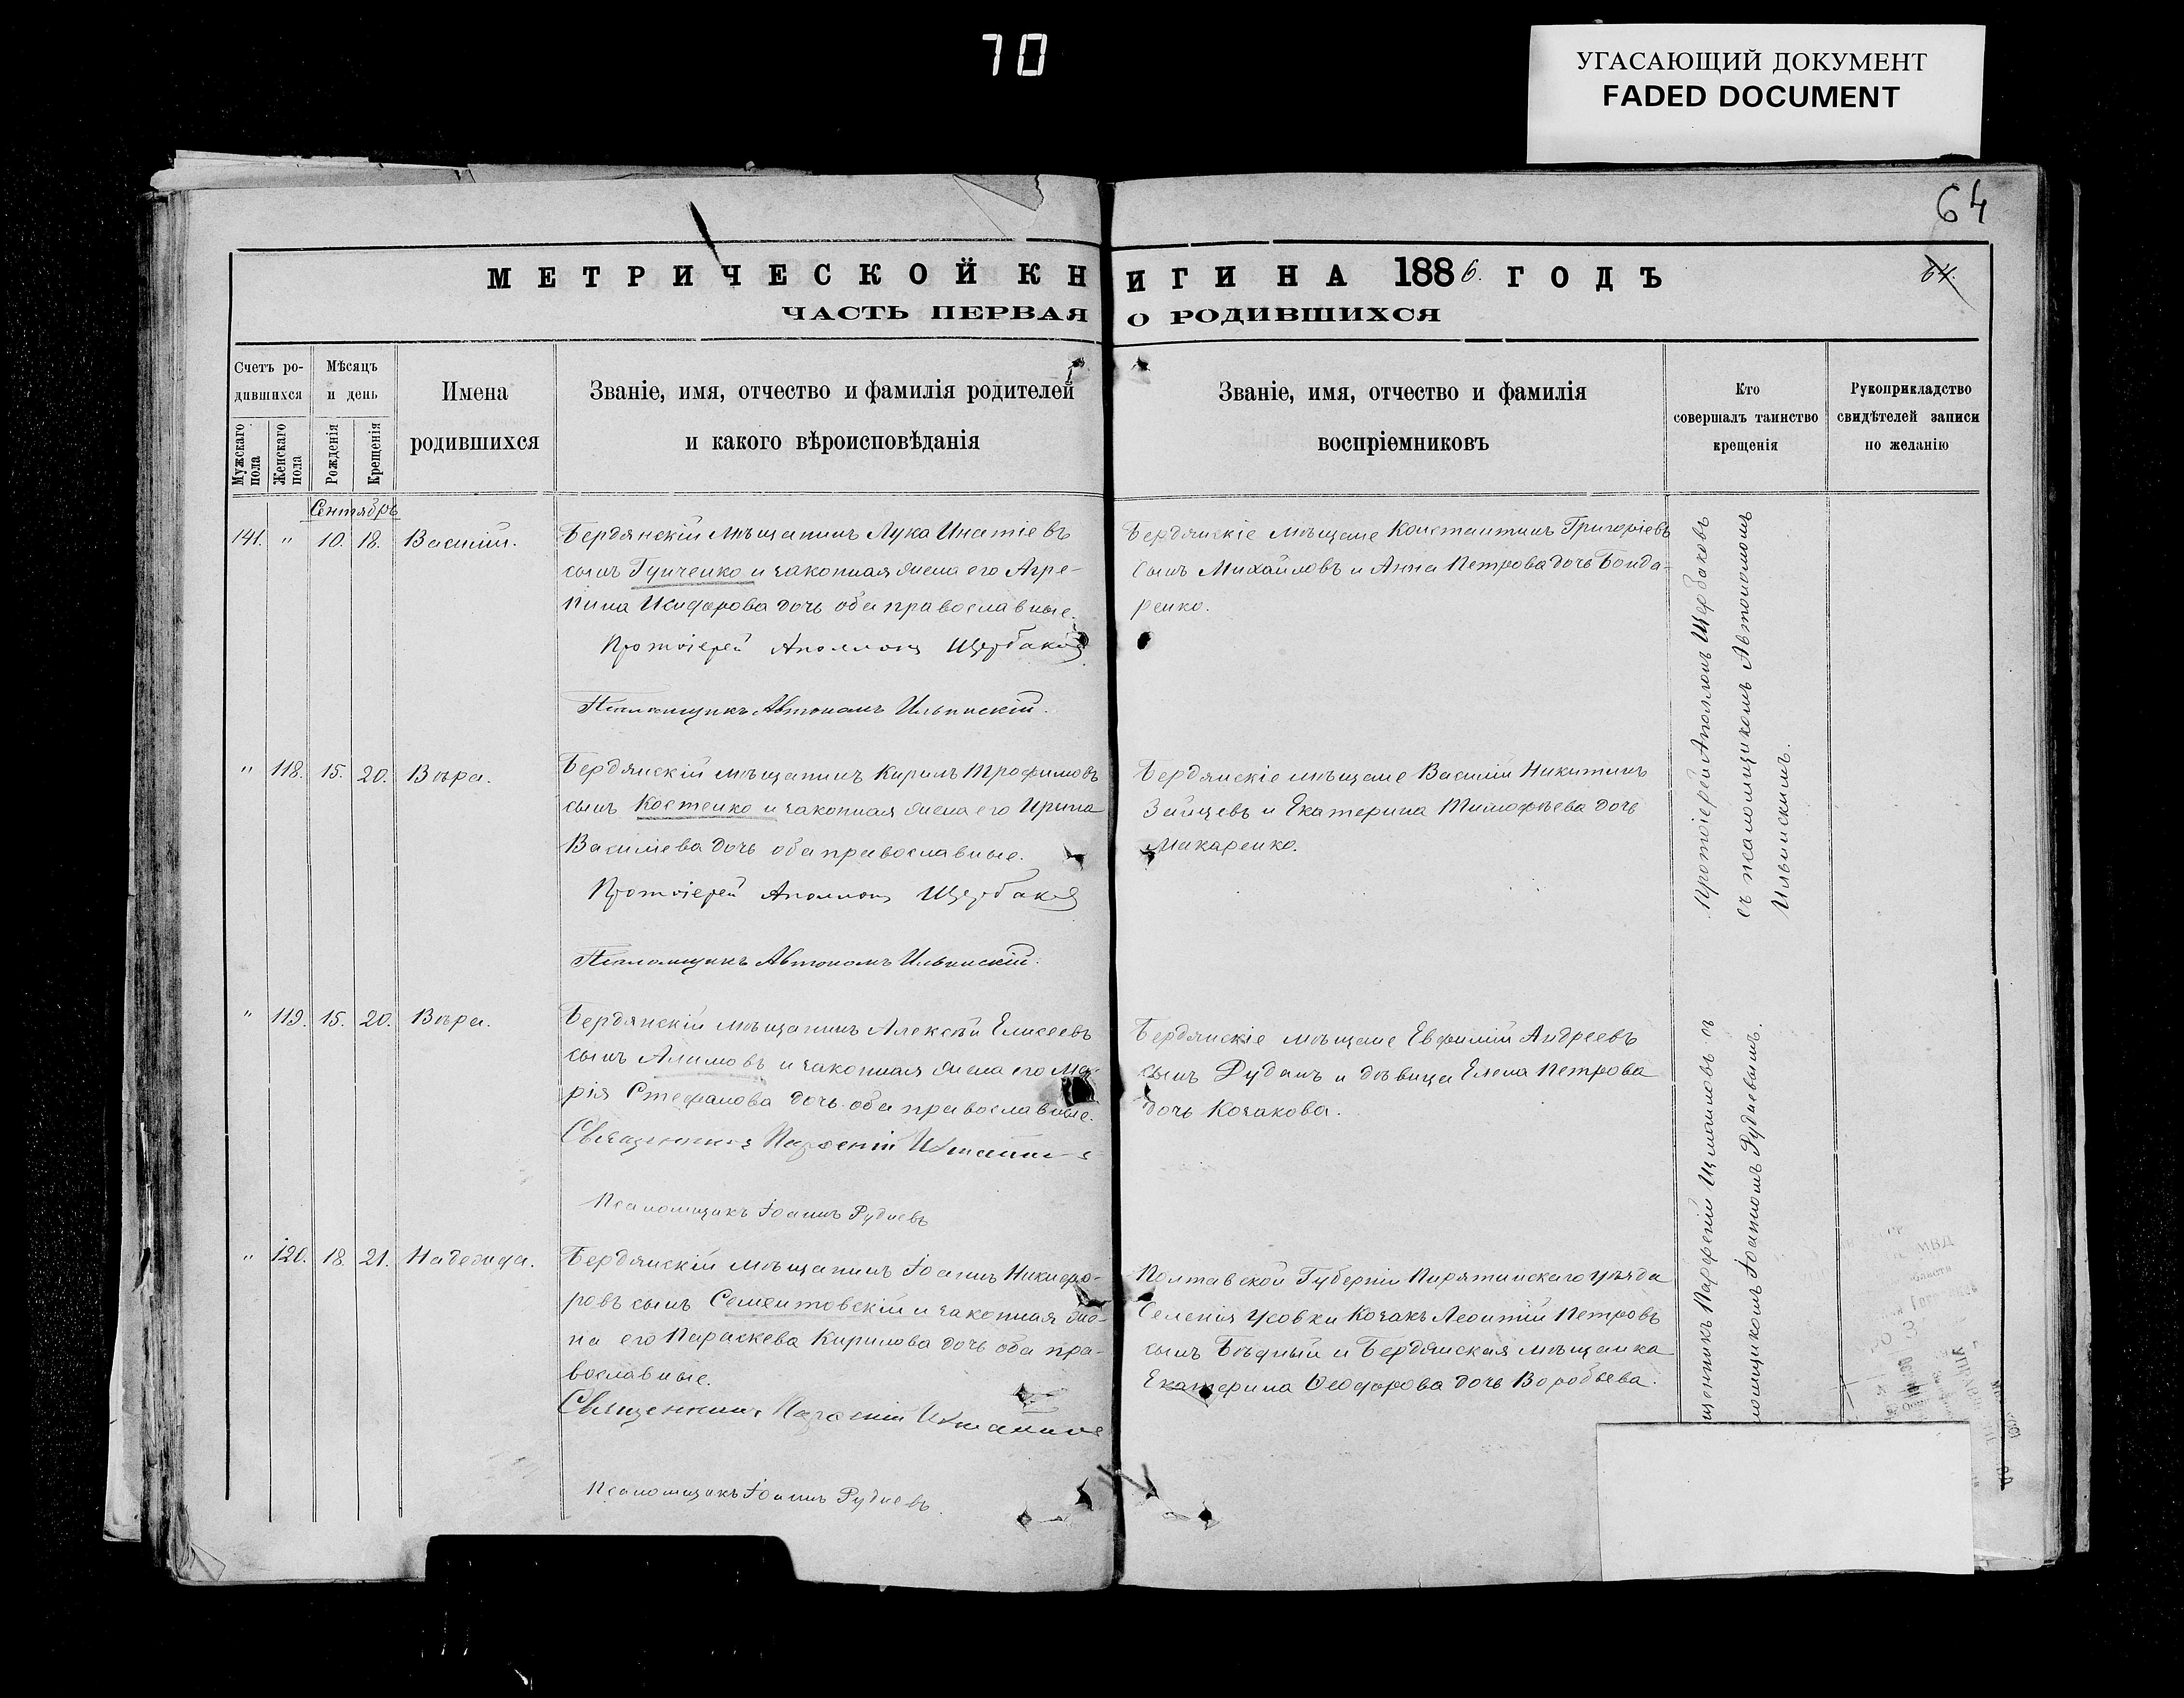 70
УГАСАЮЩИЙ ДОКУМЕНТ
FADED DOCUMENT
64
МЕТРИЧЕСКОЙ КНИГИ НА 1886. ГОДЪ
64.
ЧАСТЬ ПЕРВАЯ О РОДИВШИХСЯ
Счетъ ро-
дившихся
Мужскаго пола
Женскаго пола
Мѣсяцъ
и день
Рожденія
Крещенія
Имена
родившихся
Званіе, имя, отчество и фамилія родителей
и какого вѣроисповѣданія
Званіе, имя, отчество и фамилія
воспріемниковъ
Кто
совершалъ таинство
крещенія
Рукоприкладство
свидѣтелей записи
по желанію
Сентябрь
141. " 10. 18. Василій.
Бердянскій мѣщанинъ Лука Игнатіевъ
сынъ и законная жена его Агре-
пина Исидорова дочь оба православные.
Протоіерей Аполлонъ Щербаковъ
Псаломщикъ Автономъ Ильинскій.
Бердянскіе мѣщане Константинъ Григоріевъ
сынъ Михайловъ и Анна Петрова дочь Бонда-
ренко.
Протоіерей Аполлонъ Щербаковъ
съ псаломщикомъ Автономомъ
Ильинскимъ.
" 118. 15. 20. Вѣра.
Бердянскій мѣщанинъ Кирилъ Трофимовъ
сынъ Костенко и законная жена его Ирина
Василіева дочь оба православные.
Протоіерей Аполлонъ Щербаковъ
Псаломщикъ Автономъ Ильинскій.
Бердянскіе мѣщане Василій Никитинъ
Зайцевъ и Екатерина Тимофѣева дочь
Макаренко.
" 119. 15. 20. Вѣра.
Бердянскій мѣщанинъ Алексѣй Елисеевъ
сынъ Алимовъ и законная жена его Ма-
рія Стефанова дочь оба православные.
Священникъ Парфеній
Псаломщикъ Іоаннъ Рудневъ
Бердянскіе мѣщане Евфимій Андреевъ
сынъ Рудынъ и дѣвица Елена Петрова
дочь Козакова.
щенникъ Парфеній съ
ломщикомъ Іоанномъ Рудневымъ.
" 120. 18. 21. Надежда.
Бердянскій мѣщанинъ Іоаннъ Никифо-
ровъ сынъ Сементовскій и законная же-
на его Параскева Кирилова дочь оба пра-
вославные.
Священникъ Парфеній
Псаломщикъ Іоаннъ Рудневъ.
Полтавской Губерніи Пирятинскаго уѣзда
селенія Усовки Козакъ Леонтій Петровъ
сынъ Бѣдный и Бердянская мѣщанка
Екатерина Ѳеодорова дочь Воробьева.
МВД